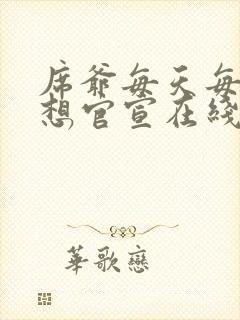 席爺每天每
想官宣在綫
華歌戀